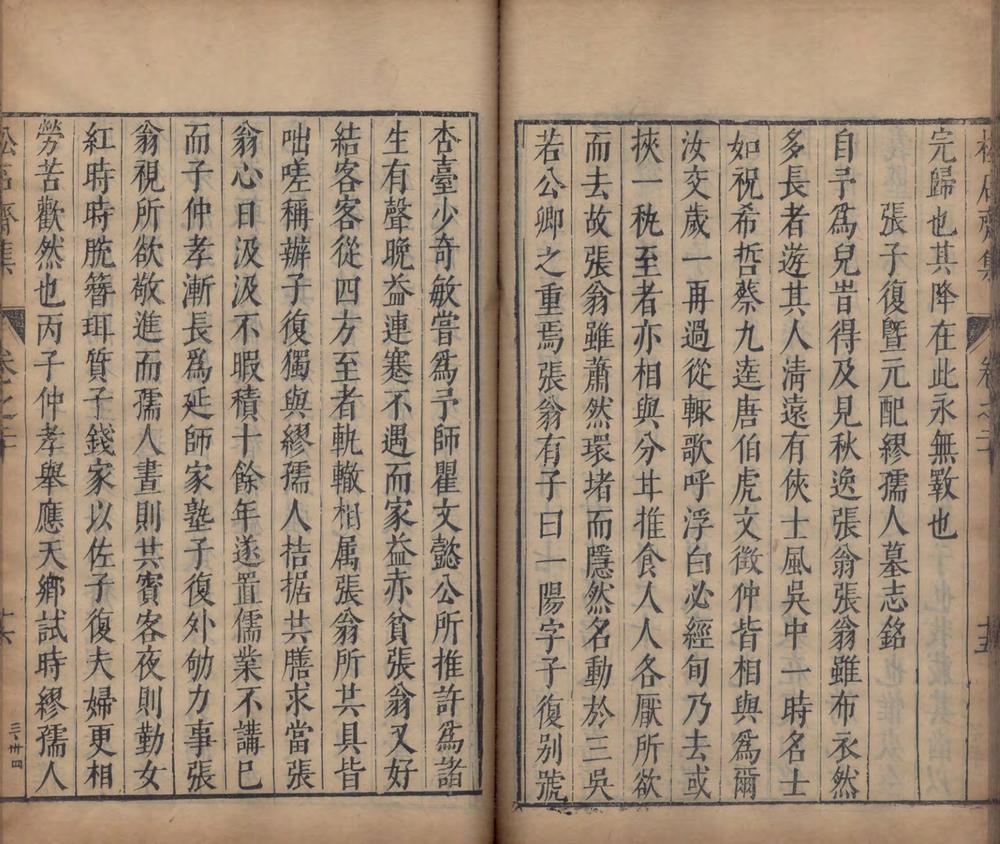 完歸也其降在此永無斁也
張子復暨元配繆孺人墓志銘
自予爲兒旹得及見秋逸張翁張翁雖布衣然
多長者遊其人淸遠有俠士風吳中一時名士
如祝希哲蔡九逵唐伯虎文徵仲皆相與爲爾
汝交歲一再過從輒歌呼浮白必經旬乃去或
挾一秇至者亦相與分廿推食人人各厭所欲
而去故張翁雖蕭然環堵而隱然名動於三吳
若公卿之重焉張翁有子曰一陽字子復别號
杏臺少奇敏嘗爲予師瞿文懿公所推許爲諸
生有聲晩益連蹇不遇而家益赤貧張翁又好
結客客從四方至者軌轍相属張翁所共具皆
咄嗟稱辦子復獨與繆孺人拮据共膳求當張
翁心日汲汲不暇積十餘年遂置儒業不講巳
而子仲孝漸長爲延師家塾子復外劬力事張
翁視所欲敬進而孺人晝則共賓客夜則勤女
紅時時脫簪珥質子錢家以佐子復夫婦更相
勞苦歡然也丙子仲孝舉應天鄉試時繆孺人
松石齋集
卷之二十
十六
三、卌四